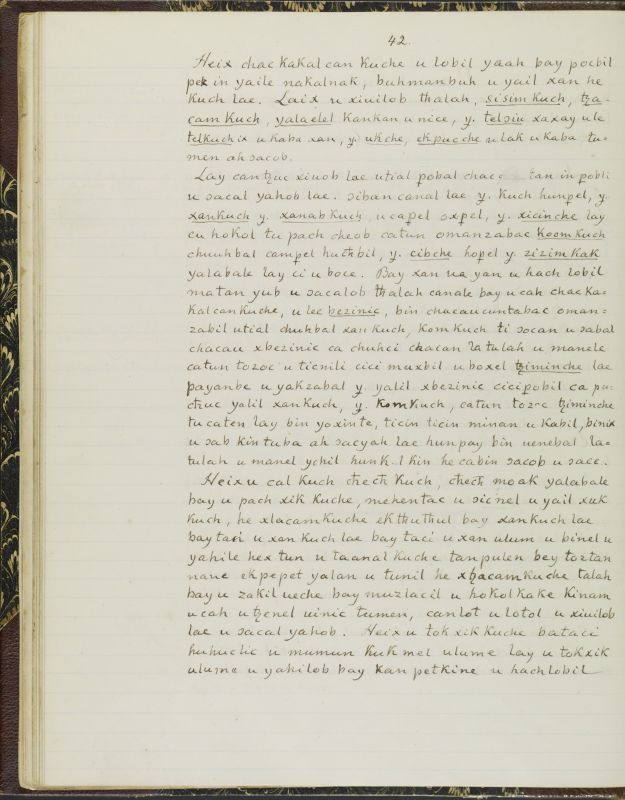 42.
Heix chac kakal can kuche u lobil yaah bay pocbil
pek in yaile nakalnak, buhmanbuh u yail xan he
kuch lae. Laix u xiuilob thalah, sisim kuch, tza-
cam kuch, yalaelel kankan u nice, y. telsiu xaxay u le
telkuchix u kaba xan, y. ukche, ekpacche u lak u kaba tu-
men ah sacob.
Lay can tzuc xiuob lae utial pobal chace tan in pobli
u sacal yahob lae. siban canal lae y. kuch hunpel, y
xankuch y. xanab kuch, u capel oxpel, y. xicinche lay
cu hokol tu pach cheob catun omanzabac koom kuch
chuuhbal campel huchbil, y. cibche hopel y. zizim kak
yalabale lay ci u boce. Bay xan ua yan u hach lobil
matan yub u sacalob thalah canale bay u cah chac ka-
kal can kuche, u lec bezinic, bin chacaucuntabac oman=
zabil utial chuhbal xan kuch, kom kuch ti socan u sabal
chacau xbezinic ca chuhci chacan latulah u manele
catun tozoc u ticnili cici muxbil u boxel tziminche lae
payanbe u yakzabal y. yalil xbezinic cicipobil ca
chuc yalil xankuch, y. kom kuch, catun tozoc tziminche
tu caten lay bin yoxinte, ticin ticin minan u kabil, binix
u sab kintuba ah sacyah lae hunpay bin uenebal la-
tulah u manel ychil hunkul kin he cabin sacob u sace.
Heix u cal kuch chech kuch, chech moak yalabale
bay u pach xik kuche, mehentac u sicnel u yail xuk
kuch, he xlacam kuche ek thuthul bay xankuch lae
bay taci u xan kuch lae bay taci u xan ulum u binel u
yahile hex tun u taanal kuche tan pulen bey toztan
nare ekpepet yalan u tunil he xtzacam kuche talah
bay u zakil ueche bay muzlacil u hokol kake kinam
u cah u tzenel uinic tumen, canlot u lotol u xiuilob
lae u sacal yahob. Heix u tok xik kuche bataci
huhuclic u mumun kukmel ulume lay u tokxik
ulume u yahilob bay kan petkine u hach lobil